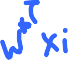 w*T xi